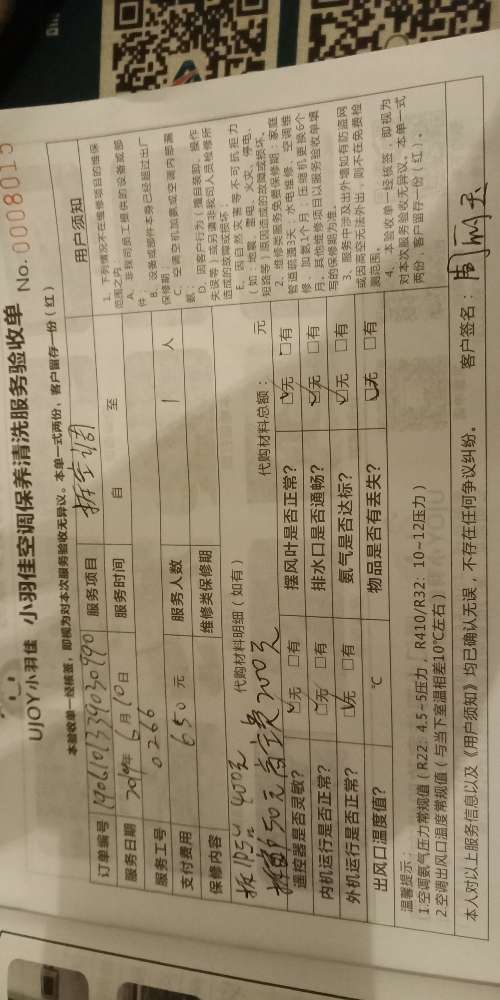 UJOY小羽佳 小羽佳空调保养清洗服务验收单 No. 0008015
本验收单一经核签，即视为对本次服务验收无异议。本单一式两份，客户留存一份（红）
订单编号 1906101339030990 服务项目 拆空调
服务日期 2019年6月10日 服务时间 自 至
服务工号 0266
支付费用 650 元 服务人数 1 人
保修内容 维修类保修期
代购材料明细（如有） 代购材料总额： 元
拆1P5H 400元
50元 200元
遥控器是否灵敏? 无 有 摆风叶是否正常? 无 有
内机运行是否正常? 无 有 排水口是否通畅? 无 有
外机运行是否正常? 无 有 氨气是否达标? 无 有
出风口温度值? ℃ 物品是否有丢失? 无 有
用户须知
1. 下列情况不在维修项目的维保
范围之内
A. 非我司员工提供的设备或部
件
B. 设备或部件本身已经超过出厂
保修期
C. 空调室机加氨或空调内部漏
氨；
D. 因客户行为（擅自装卸、操作
失误等）或另请非我司人员检修所
造成的故障或损坏
E. 因自然灾害等不可抗拒力
（如：地震、雷电、火灾、停电、
短路等）原因造成的故障或损坏。
2. 维修类服务免费保修期：家庭
管道疏通3天；水电维修、空调维
修、加氨1个月；压缩机更换6个
月，其他维修项目以服务验收单填
写的保修期为准。
3. 服务中涉及出外墙如有防盗网
或因高空无法外出，则不在免费检
测范围。
4. 本验收单一经核签，即视为
对本次服务验收无异议。本单一式
两份，客户留存一份（红）。
温馨提示：
1.空调氨气压力常规值（R22：4.5~5压力，R410/R32：10~12压力）
2.空调出风口温度常规值（与当下室温相差10℃左右）
本人对以上服务信息以及《用户须知》均已确认无误，不存在任何争议纠纷。 客户签名：